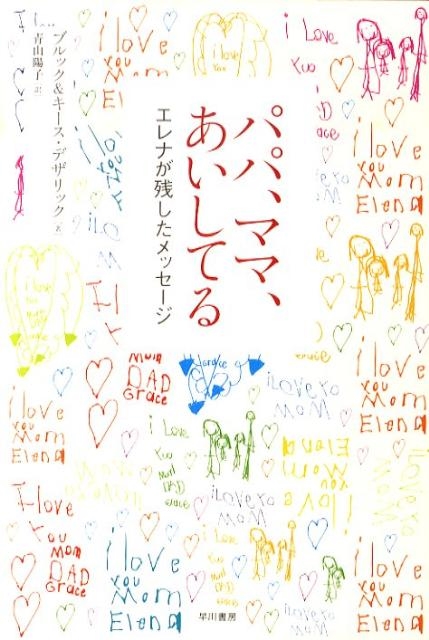 パパ、ママ、
あいしてる
エレナが残したメッセージ
ブルック&キース・デザリック 著
青山陽子 訳
i love
you
Mom
El
i love
you
i Love
you
D
ace
i love
you
Mom
Elena
i LO
M
I
Y
Mom
DAD
Grace
Grace
race
i love
you
Mom
Elena
i Love
you
Mom
DAD
Grace
iLove yo
MoM
i love
you
Mom
Elena
i love
you
Mom
Elena
iLove yo
MoM
I love
you
Mom
DAD
Grace
i love
you
Mom
Elena
i Love
you
Mom
DAD
Grace
iLove yo
MoM
i love
you
Mom
Elena
早川書房